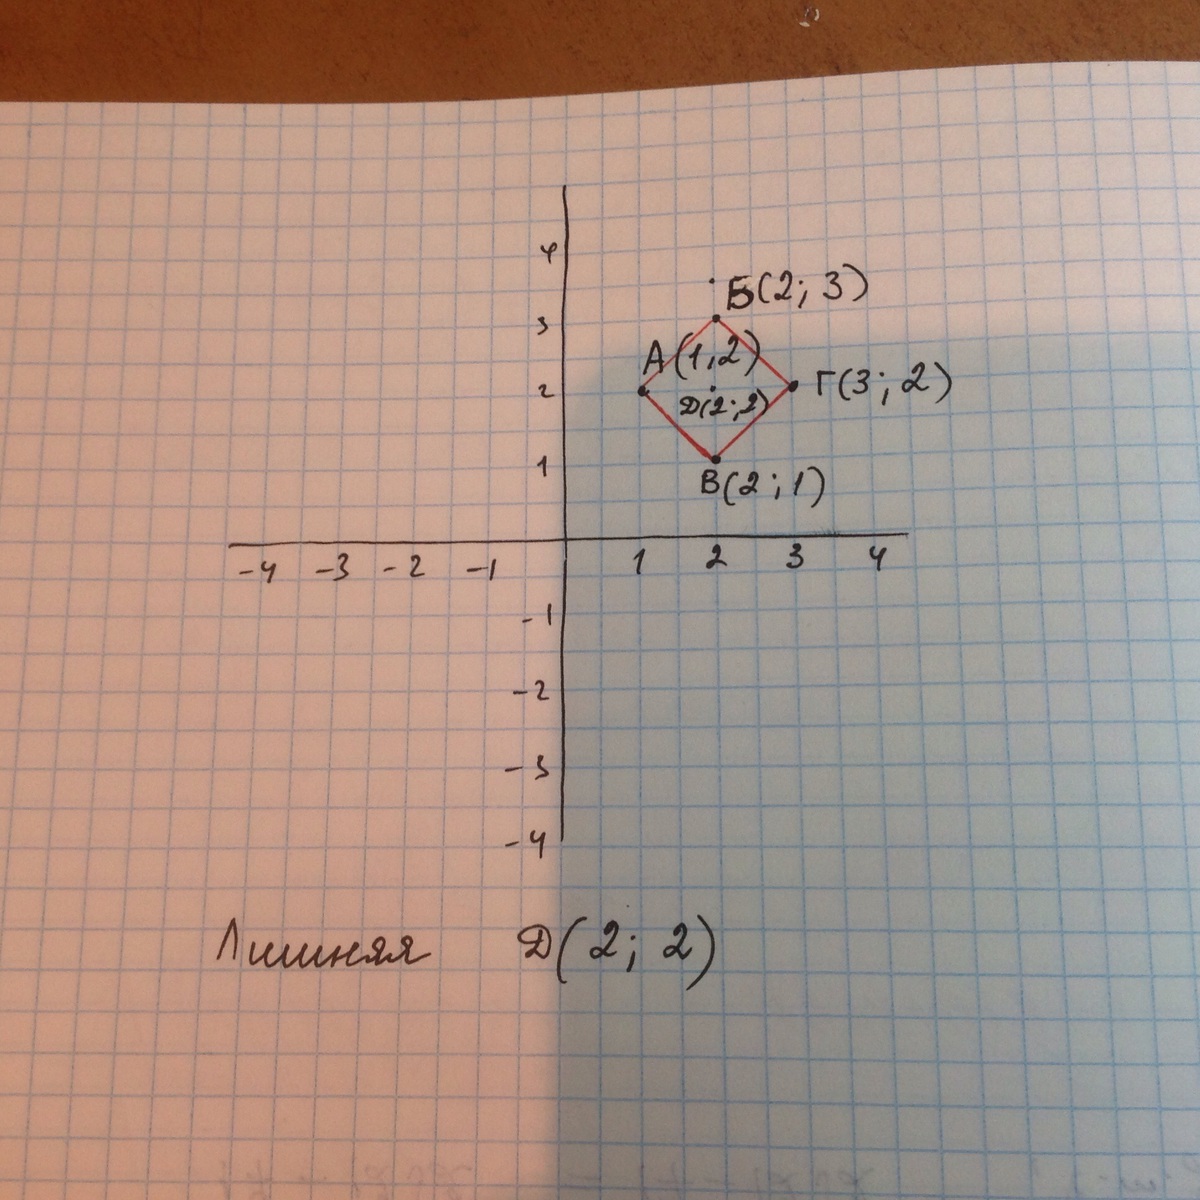 4
Б(2; 3)
3
А(1,2)
2
Д(2;2)
Г(3; 2)
1
В(2;1)
-4 -3 -2 -1 1 2 3 4
-1
-2
-3
-4
Лишняя Д(2; 2)